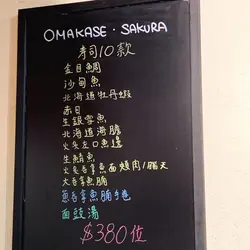 OMAKASE · SAKURA
寿司10款
金目鯛
沙甸魚
北海道牡丹蝦
赤目
生銀雪魚
北海道海膽
火炙左口魚邊
生鯖魚
火炙吞拿魚面頰肉/腦天
大吞拿魚腩
蔥吞拿魚腩手卷
面豉湯
$380位